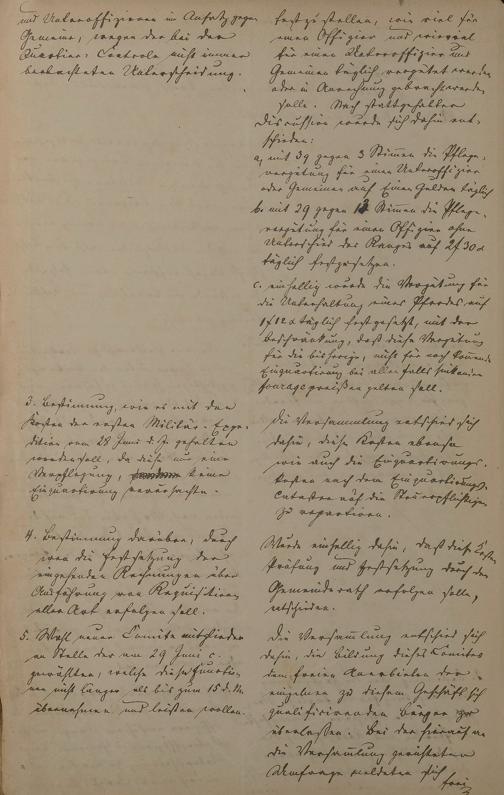 und Unteroffizieren im Ansatz gegen
Gemeine, wegen der bei der
Quartier-Controle nicht immer
beobachteten Unterscheidung.
festzustellen, wie viel für
einen Offizier und wieviel
für einen Unteroffizier und
Gemeinen täglich vergütet werden
oder in Anrechnung gebracht werden
solle. Nach stattgehabter
Discussion wurde sich dahin ent-
schieden:
a, mit 39 gegen 3 Stimmen die Pflege-
vergütung für einen Unteroffizier
oder Gemeinen auf Einen Gulden täglich
b. mit 29 gegen Stimmen die Pflege-
vergütung für einen Offizier ohne
Unterschied des Ranges auf 2f 30x
täglich festzusetzen.
c. einhellig wurde die Vergütung für
die Unterhaltung eines Pferdes auf
1f 12x täglich festgesetzt, mit der
Beschränkung, daß diese Vergütung
für die bisherige, nicht für noch kommende
Einquartierung bei allenfalls
Fouragepreißen gelten soll.
3. Bestimmung, wie es mit den
Kosten der ersten Militär-Expe-
dition vom 28 Juni d. J. gehalten
werden soll, da diese nur eine
Verpflegung, keine
Einquartierung verursachte.
Die Versammlung entschied sich
dahin, diese Kosten ebenso
wie auch die Einquartierungs-
kosten nach dem Einquartierungs-
Cataster auf die Steuerpflichtigen
zu repartiren.
4. Bestimmung darüber, durch
wen die Festsetzung der
eingehenden Rechnungen über
Ausführung von Requisitionen
aller Art erfolgen soll.
Wurde einhellig dahin, daß diese
Prüfung und Festsetzung durch den
Gemeinderath erfolgen solle,
entschieden.
5. Wahl neuer Comite mitglieder
an Stelle der am 29 Juni c.
gewählten, welche diese Functio-
nen nicht länger als bis zum 15 d. M.
übernehmen und leisten wollen.
Die Versammlung entschied sich
dahin, die Bildung dieses Comites
dem freien Anerbieten der
einzelnen zu diesem Geschäft sich
qualifizirenden Bürger zu
überlassen. Bei der hierauf an
die Versammlung gerichteten
Umfrage meldeten sich
frei